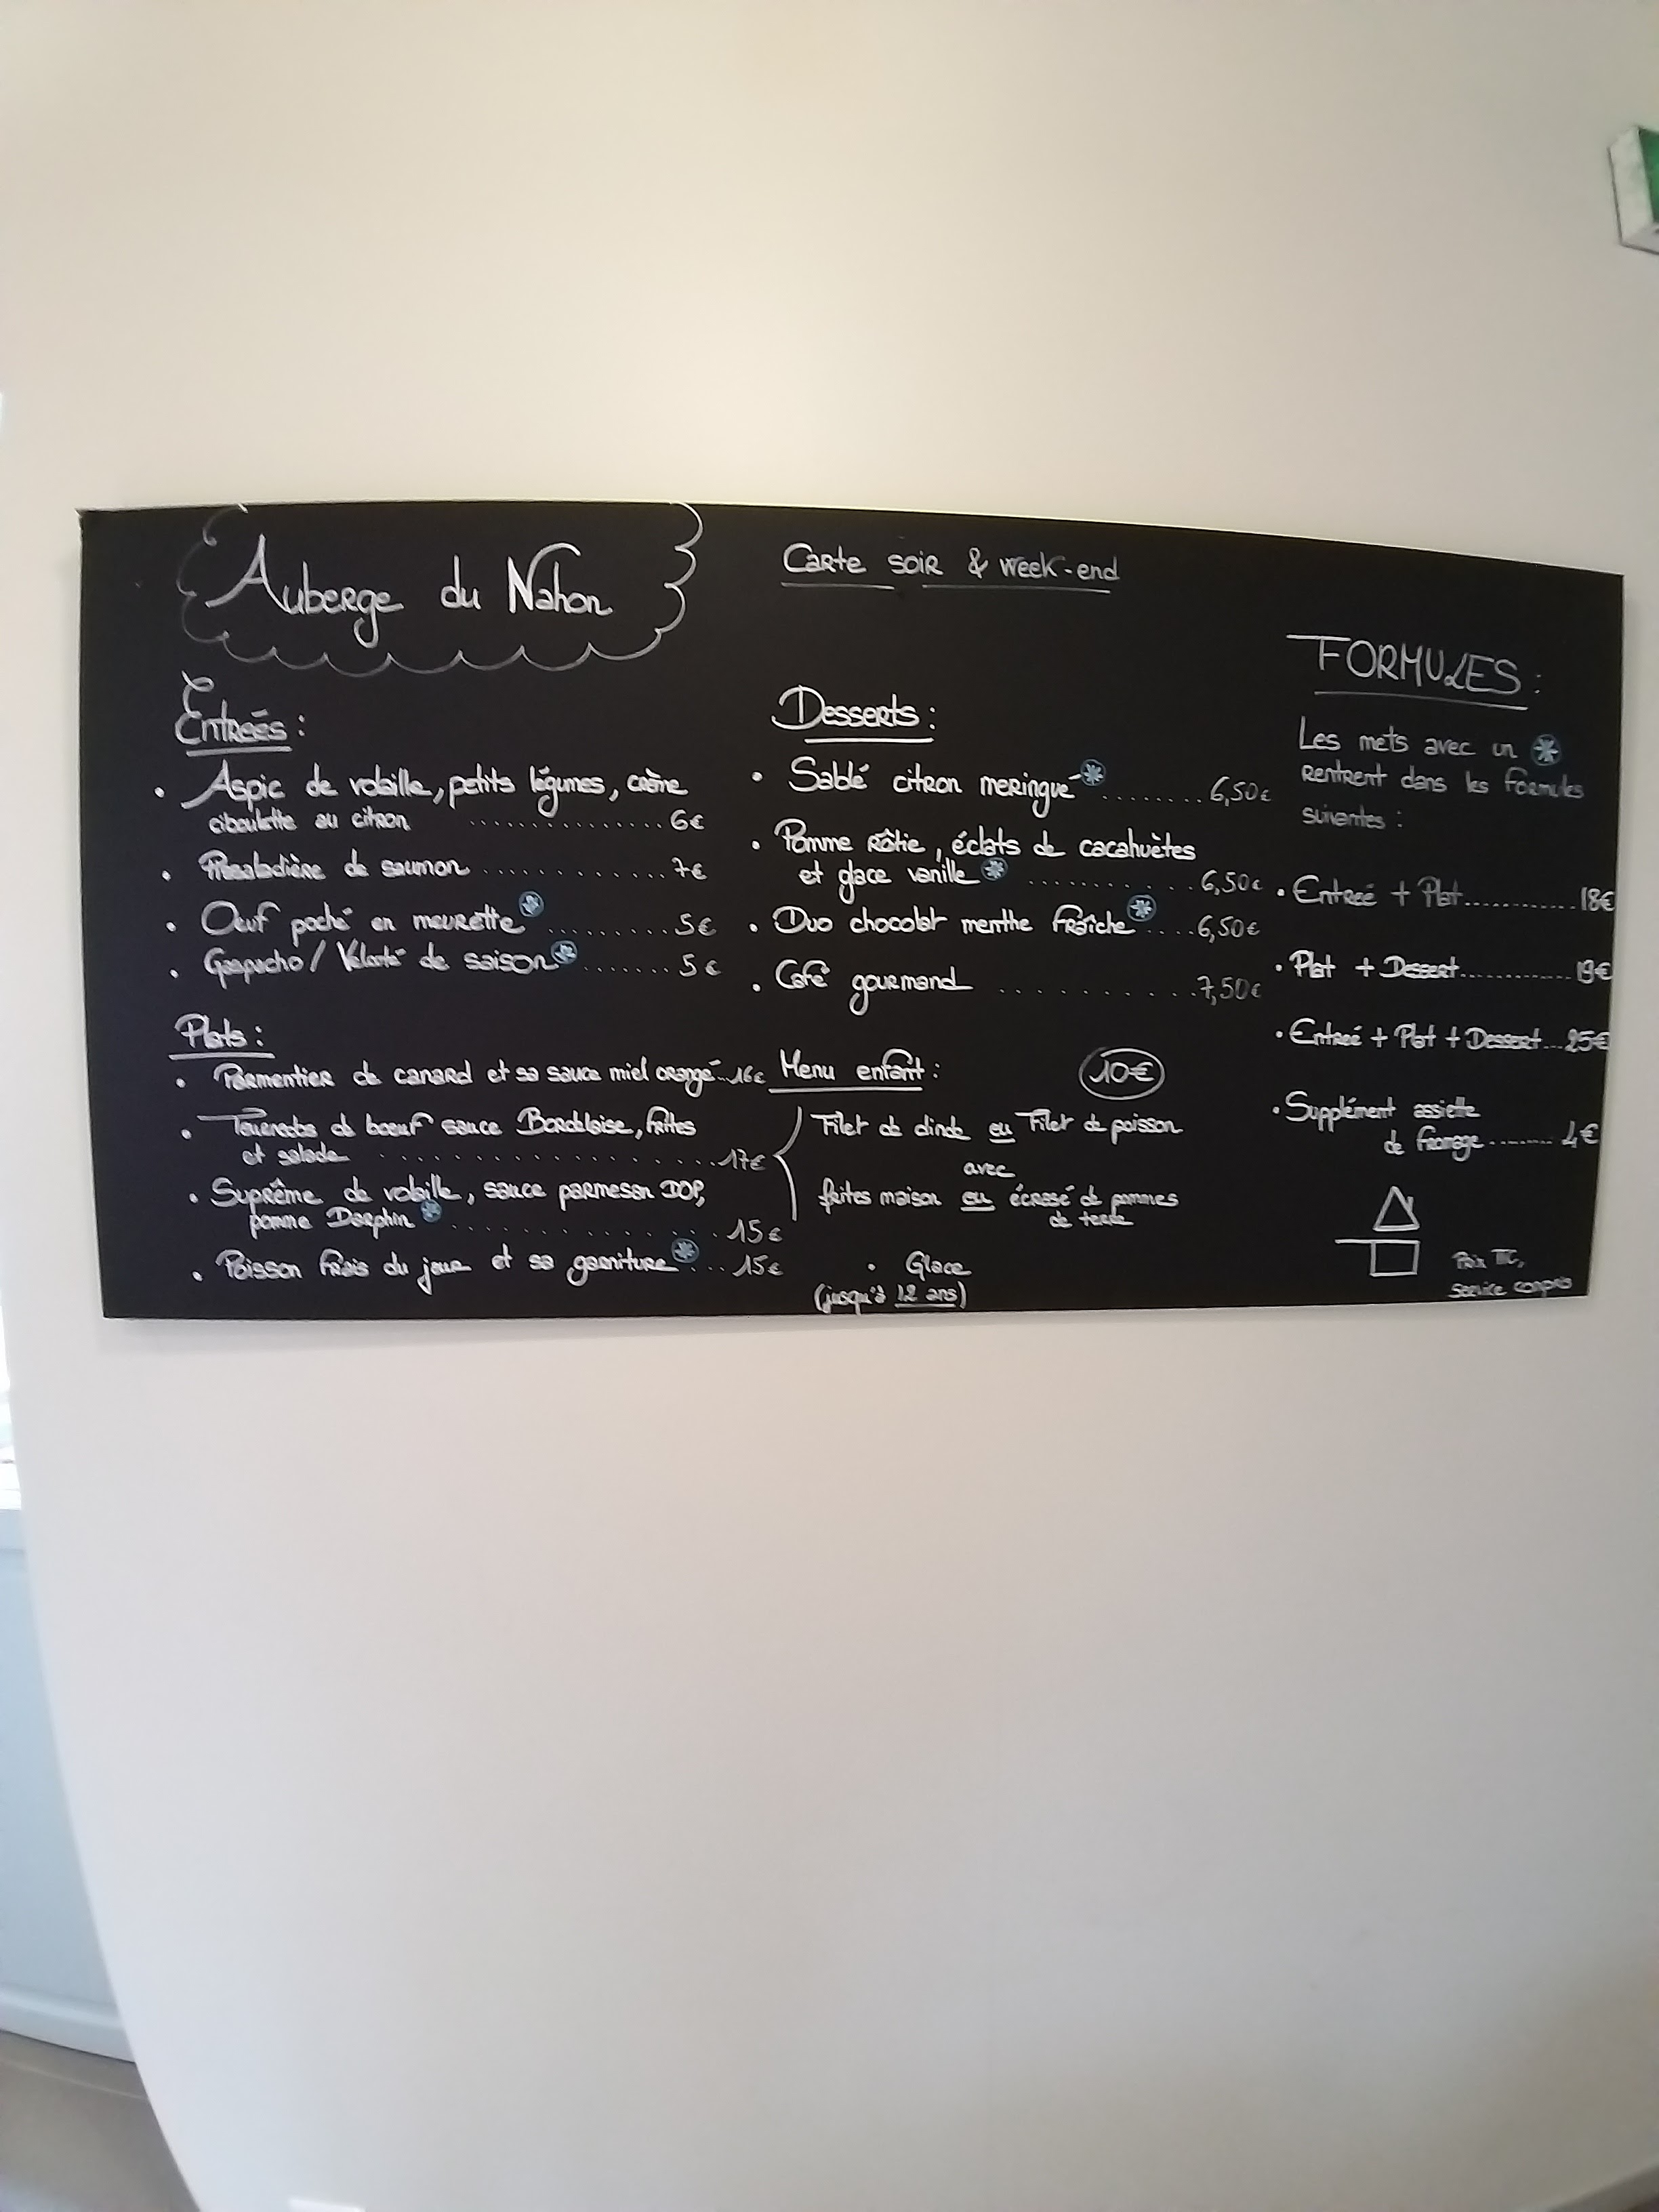 Auberge du Nahon
Carte soir & week-end
Entrées :
• Aspic de volaille, petits légumes, crème
ciboulette au citron .............. 6€
• de saumon ............ 7€
• Œuf poché en meurette * ......... 5€
• Gaspacho / Velouté de saison * ....... 5€
Plats :
• Parmentier de canard et sa sauce miel orange ... 16€
• Tournedos de boeuf sauce Bordelaise, frites
et salade ................... 17€
• Suprême de volaille, sauce parmesan DOP,
pomme Darphin * .............. 15€
• Poisson frais du jour et sa garniture * ... 15€
Desserts :
• Sablé citron meringué * ........ 6,50€
• Pomme rôtie, éclats de cacahuètes
et glace vanille * .......... 6,50€
• Duo chocolat menthe fraîche * .... 6,50€
• Café gourmand .......... 7,50€
Menu enfant : 10€
Filet de dinde ou Filet de poisson
avec
frites maison ou écrasé de pommes
de terre
• Glace
(jusqu'à 12 ans)
FORMULES :
Les mets avec un *
rentrent dans les formules
suivantes :
• Entrée + Plat............ 18€
• Plat + Dessert............ 19€
• Entrée + Plat + Dessert... 25€
• Supplément assiette
de fromage ......... 4€
Prix TTC,
Service compris